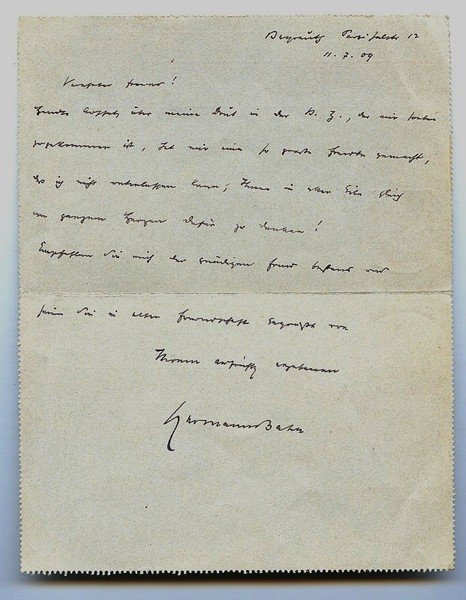 Bayreuth Parsifalstr 12
11. 7. 09
Verehrter Freund!
Aufsatz über meine Drut in der N. Z., der mir soeben
zugekommen ist, hat mir eine so große Freude gemacht,
daß ich nicht unterlassen kann, Ihnen in aller Eile gleich
von ganzem Herzen dafür zu danken!
Empfehlen Sie mich der gnädigen Frau bestens und
seien Sie in alter Freundschaft begrüßt von
Ihrem aufrichtig ergebenen
Hermann Bahr